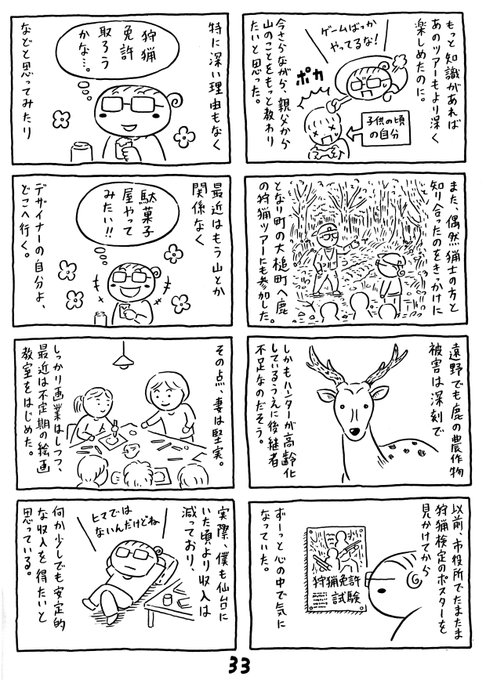 もっと知識があれば
あのツアーもより深く
楽しめたのに。
ゲームばっか
やってるな!
ポカ
子供の頃
の自分
今さらながら、親父から
山のことをもっと教わり
たいと思った。
また、偶然猟士の方と
知り合ったのをきっかけに
となり町の大槌町へ鹿
の狩猟ツアーにも参加した。
遠野でも鹿の農作物
被害は深刻で
しかもハンターが高齢化
しているうえに後継者
不足なのだそう。
以前、市役所でたまたま
狩猟検定のポスターを
見かけてから
狩猟免許
試験
ずーっと心の中で気に
なっていた。
特に深い理由もなく
狩猟
免許
取ろう
かな…。
などと思ってみたり
最近はもう山とか
関係なく
駄菓子
屋やって
みたい!!
デザイナーの自分よ、
どこへ行く。
その点、妻は堅実。
しっかり画業はしつつ、
最近は不定期の絵画
教室をはじめた。
実際、僕も仙台に
いた頃より収入は
減っており、
ヒマでは
ないんだけどね
何か少しでも安定的
な収入を得たいと
思っている。
33